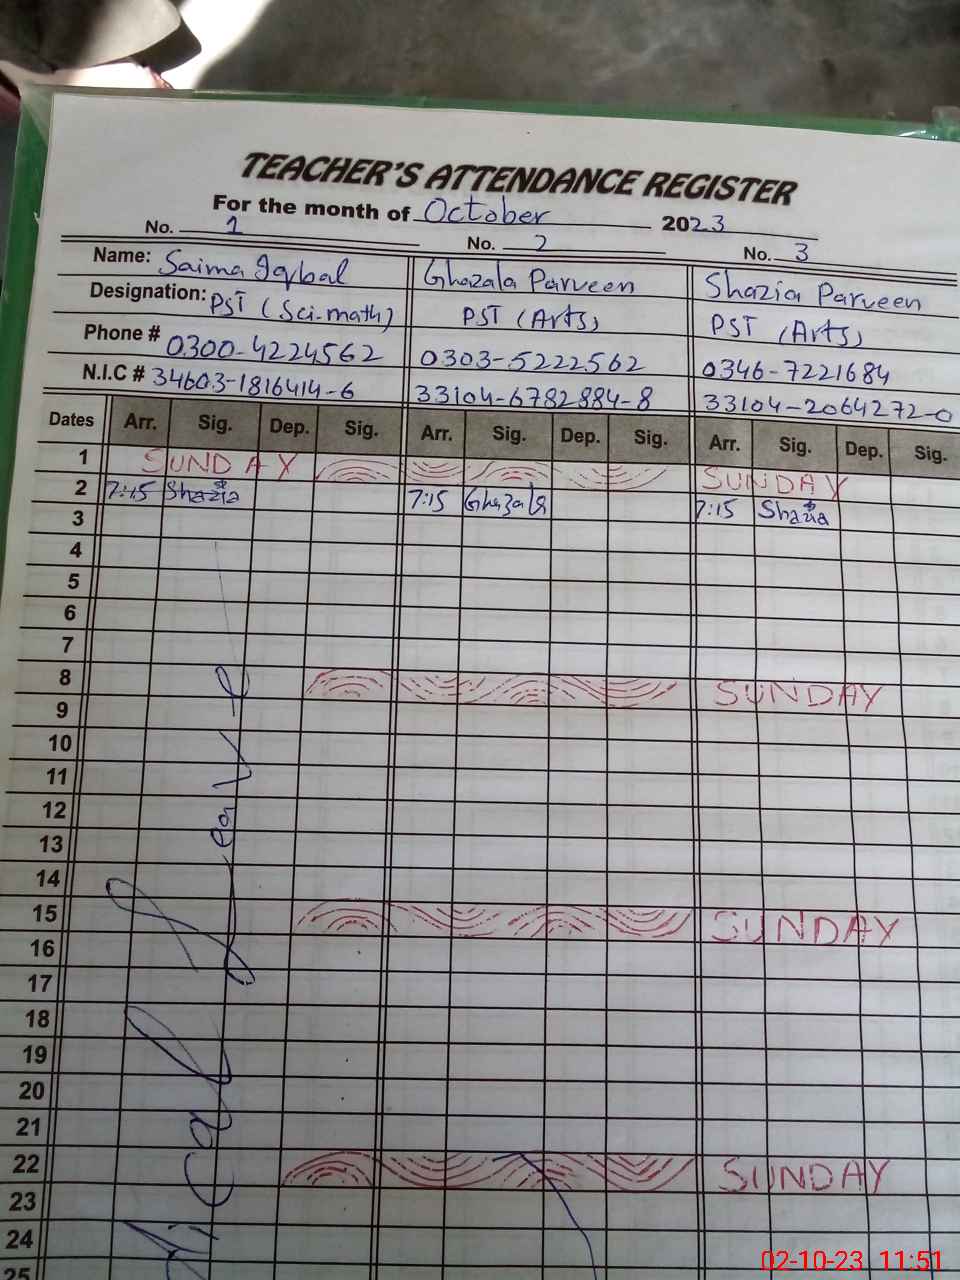 TEACHER'S ATTENDANCE REGISTER
For the month of October 2023
No. 1 No. 2 No. 3
Name: Saima Iqbal Ghazala Parveen Shazia Parveen
Designation: PST (Sci-math) PST (Arts) PST (Arts)
Phone # 0300-4224562 0303-5222562 0346-7221684
N.I.C # 34603-1816414-6 33104-6782884-8 33104-2064272-0
Dates Arr. Sig. Dep. Sig. Arr. Sig. Dep. Sig. Arr. Sig. Dep. Sig.
1 SUNDAY SUNDAY
2 7:15 Shazia 7:15 Ghazala 7:15 Shazia
3
4
5
6
7
8 SUNDAY
9
10
11
12
13
14
15 SUNDAY
16
17
18
19
20
21
22 SUNDAY
23
24
25
Leave
02-10-23 11:51